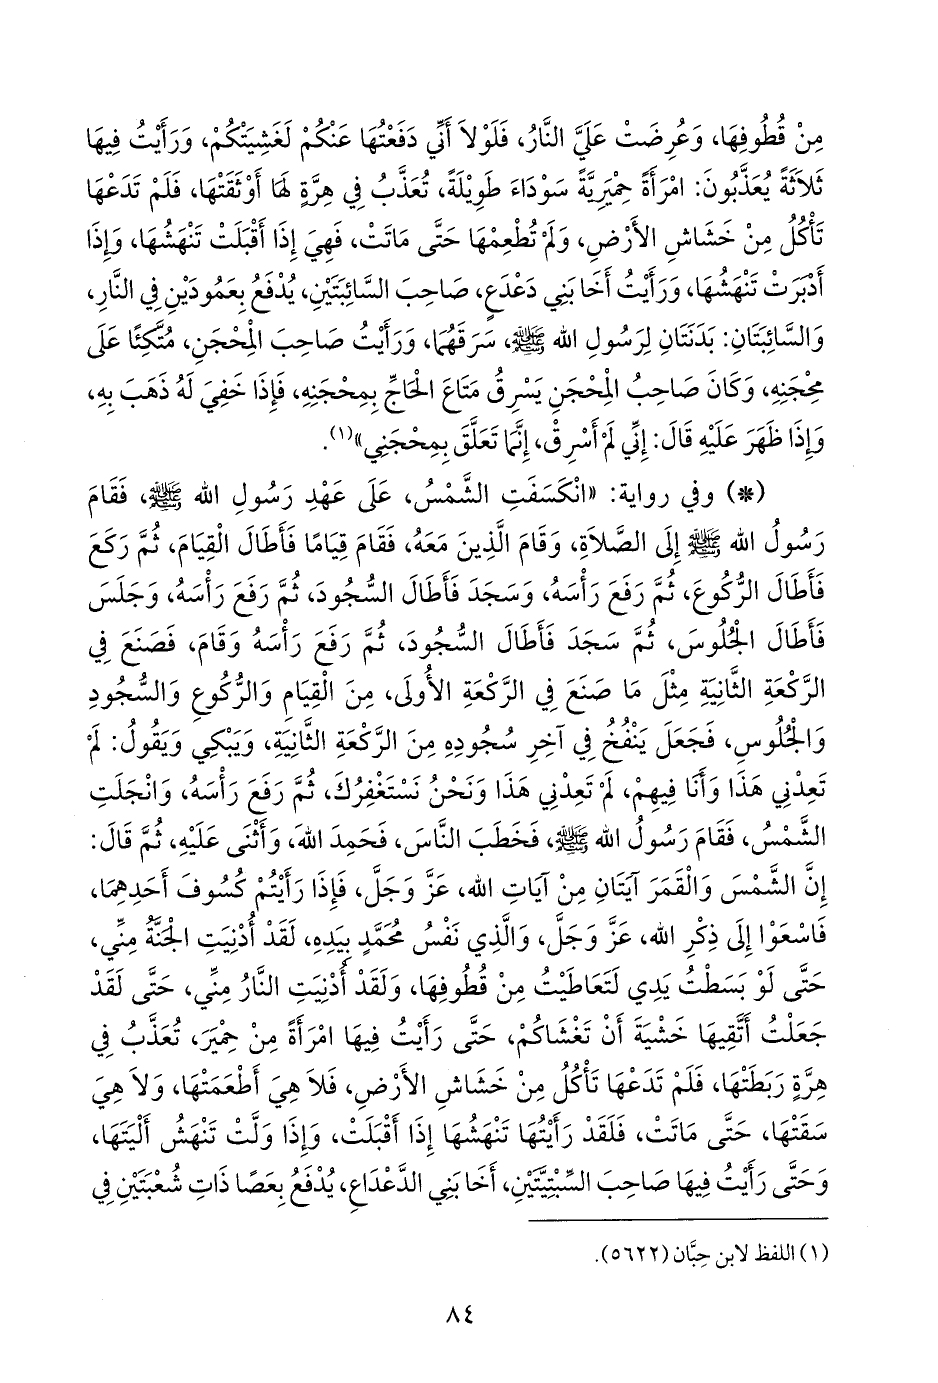 مِنْ قُطُوفِهَا، وَعُرِضَتْ عَلَيَّ النَّارُ، فَلَوْلاَ أَنِّي دَفَعْتُهَا عَنْكُمْ لَغَشِيَتْكُمْ، وَرَأَيْتُ فِيهَا
ثَلاَثَةً يُعَذَّبُونَ: امْرَأَةً حِمْيَرِيَّةً سَوْدَاءَ طَوِيلَةً، تُعَذَّبُ فِي هِرَّةٍ لَهَا أَوْثَقَتْهَا، فَلَمْ تَدَعْهَا
تَأْكُلُ مِنْ خَشَاشِ الأَرْضِ، وَلَمْ تُطْعِمْهَا حَتَّى مَاتَتْ، فَهِيَ إِذَا أَقْبَلَتْ تَنْهَشُهَا، وَإِذَا
أَدْبَرَتْ تَنْهَشُهَا، وَرَأَيْتُ أَخَا بَنِي دَعْدَعٍ، صَاحِبَ السَّائِبَتَيْنِ، يُدْفَعُ بِعَمُودَيْنِ فِي النَّارِ،
وَالسَّائِبَتَانِ: بَدَنَتَانِ لِرَسُولِ الله ﷺ، سَرَقَهُمَا، وَرَأَيْتُ صَاحِبَ الْمِحْجَنِ، مُتَّكِئًا عَلَى
مِحْجَنِهِ، وَكَانَ صَاحِبُ الْمِحْجَنِ يَسْرِقُ مَتَاعَ الْحَاجِّ بِمِحْجَنِهِ، فَإِذَا خَفِيَ لَهُ ذَهَبَ بِهِ،
وَإِذَا ظَهَرَ عَلَيْهِ قَالَ: إِنِّي لَمْ أَسْرِقْ، إِنَّمَا تَعَلَّقَ بِمِحْجَنِي»(١).
(*) وفي رواية: «انْكَسَفَتِ الشَّمْسُ، عَلَى عَهْدِ رَسُولِ الله ﷺ، فَقَامَ
رَسُولُ الله ﷺ إِلَى الصَّلاَةِ، وَقَامَ الَّذِينَ مَعَهُ، فَقَامَ قِيَامًا فَأَطَالَ الْقِيَامَ، ثُمَّ رَكَعَ
فَأَطَالَ الرُّكُوعَ، ثُمَّ رَفَعَ رَأْسَهُ، وَسَجَدَ فَأَطَالَ السُّجُودَ، ثُمَّ رَفَعَ رَأْسَهُ، وَجَلَسَ
فَأَطَالَ الْجُلُوسَ، ثُمَّ سَجَدَ فَأَطَالَ السُّجُودَ، ثُمَّ رَفَعَ رَأْسَهُ وَقَامَ، فَصَنَعَ فِي
الرَّكْعَةِ الثَّانِيَةِ مِثْلَ مَا صَنَعَ فِي الرَّكْعَةِ الأُولَى، مِنَ الْقِيَامِ وَالرُّكُوعِ وَالسُّجُودِ
وَالْجُلُوسِ، فَجَعَلَ يَنْفُخُ فِي آخِرِ سُجُودِهِ مِنَ الرَّكْعَةِ الثَّانِيَةِ، وَيَبْكِي وَيَقُولُ: لَمْ
تَعِدْنِي هَذَا وَأَنَا فِيهِمْ، لَمْ تَعِدْنِي هَذَا وَنَحْنُ نَسْتَغْفِرُكَ، ثُمَّ رَفَعَ رَأْسَهُ، وَانْجَلَتِ
الشَّمْسُ، فَقَامَ رَسُولُ الله ﷺ، فَخَطَبَ النَّاسَ، فَحَمِدَ اللهَ، وَأَثْنَى عَلَيْهِ، ثُمَّ قَالَ:
إِنَّ الشَّمْسَ وَالْقَمَرَ آيَتَانِ مِنْ آيَاتِ الله، عَزَّ وَجَلَّ، فَإِذَا رَأَيْتُمْ كُسُوفَ أَحَدِهِمَا،
فَاسْعَوْا إِلَى ذِكْرِ الله، عَزَّ وَجَلَّ، وَالَّذِي نَفْسُ مُحَمَّدٍ بِيَدِهِ، لَقَدْ أُدْنِيَتِ الْجَنَّةُ مِنِّي،
حَتَّى لَوْ بَسَطْتُ يَدِي لَتَعَاطَيْتُ مِنْ قُطُوفِهَا، وَلَقَدْ أُدْنِيَتِ النَّارُ مِنِّي، حَتَّى لَقَدْ
جَعَلْتُ أَتَّقِيهَا خَشْيَةَ أَنْ تَغْشَاكُمْ، حَتَّى رَأَيْتُ فِيهَا امْرَأَةً مِنْ حِمْيَرَ، تُعَذَّبُ فِي
هِرَّةٍ رَبَطَتْهَا، فَلَمْ تَدَعْهَا تَأْكُلُ مِنْ خَشَاشِ الأَرْضِ، فَلاَ هِيَ أَطْعَمَتْهَا، وَلاَ هِيَ
سَقَتْهَا، حَتَّى مَاتَتْ، فَلَقَدْ رَأَيْتُهَا تَنْهَشُهَا إِذَا أَقْبَلَتْ، وَإِذَا وَلَّتْ تَنْهَشُ أَلْيَتَهَا،
وَحَتَّى رَأَيْتُ فِيهَا صَاحِبَ السِّبْتِيَّتَيْنِ، أَخَا بَنِي الدَّعْدَاعِ، يُدْفَعُ بِعَصًا ذَاتِ شُعْبَتَيْنِ فِي
(١) اللفظ لابن حِبَّان (٥٦٢٢).
٨٤